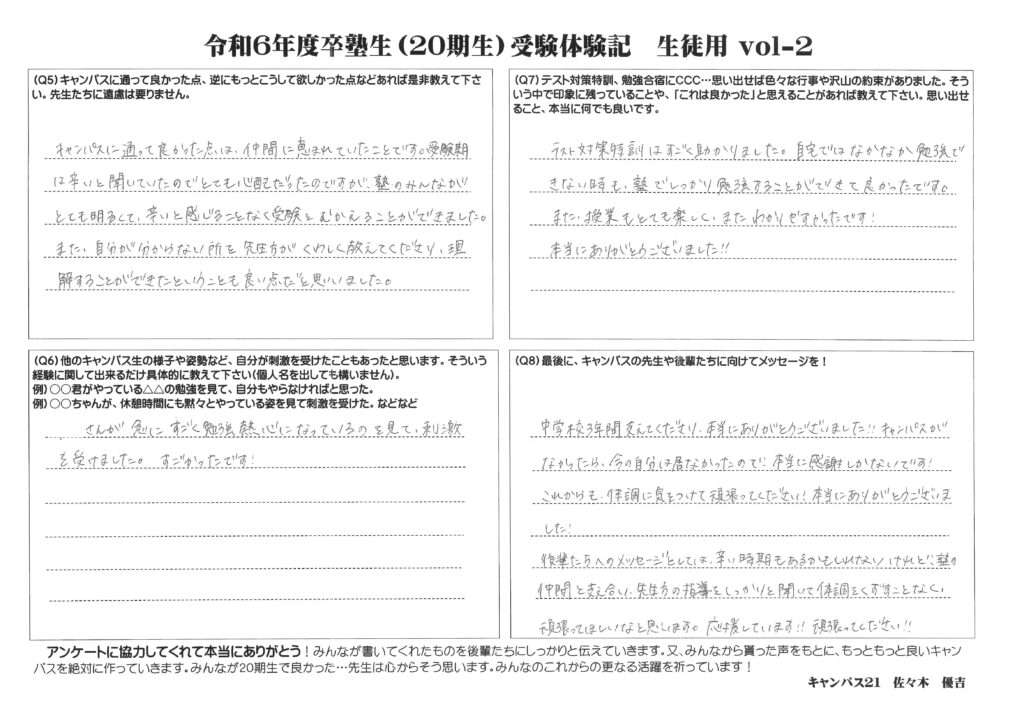 令和6年度卒塾生（20期生）受験体験記　生徒用 vol-2
（Q5）キャンパスに通って良かった点、逆にもっとこうして欲しかった点などあれば是非教えて下さ
い。先生たちに遠慮は要りません。
キャンパスに通って良かった点は、仲間に恵まれていたことです。受験期
は辛いと聞いていたのでとても心配だったのですが、塾のみんなが
とても明るくて、辛いと感じることなく受験をむかえることができました。
また、自分が分からない所を先生方がくわしく教えてくださり、理
解することができたということも良い点だと思いました。
（Q6）他のキャンパス生の様子や姿勢など、自分が刺激を受けたこともあったと思います。そういう
経験に関して出来るだけ具体的に教えて下さい（個人名を出しても構いません）。
例）○○君がやっている△△の勉強を見て、自分もやらなければと思った。
例）○○ちゃんが、休憩時間にも黙々とやっている姿を見て刺激を受けた。などなど
さんが急にすごく勉強熱心になっているのを見て、刺激
を受けました。すごかったです!
（Q7）テスト対策特訓、勉強合宿にCCC…思い出せば色々な行事や沢山の約束がありました。そう
いう中で印象に残っていることや、「これは良かった」と思えることがあれば教えて下さい。思い出せ
ること、本当に何でも良いです。
テスト対策特訓はすごく助かりました。自宅ではなかなか勉強で
きない時も、塾でしっかり勉強することができて良かったです。
また、授業もとても楽しく、またわかりやすかったです!
本当にありがとうございました!!
（Q8）最後に、キャンパスの先生や後輩たちに向けてメッセージを！
中学校3年間支えてくださり、本当にありがとうございました!! キャンパスが
なかったら、今の自分は居なかったので、本当に感謝しかないです!
これからも、体調に気をつけて頑張ってください! 本当にありがとうございま
した!
後輩たちへのメッセージとしては、辛い時期もあるかもしれないけれど、塾の
仲間と支え合い、先生方の指導をしっかりと聞いて体調をくずすことなく、
頑張ってほしいなと思います。応援しています!! 頑張ってください!!
アンケートに協力してくれて本当にありがとう！みんなが書いてくれたものを後輩たちにしっかりと伝えていきます。又、みんなから貰った声をもとに、もっともっと良いキャン
パスを絶対に作っていきます。みんなが20期生で良かった…先生は心からそう思います。みんなのこれからの更なる活躍を祈っています！
キャンパス21　佐々木　優吉